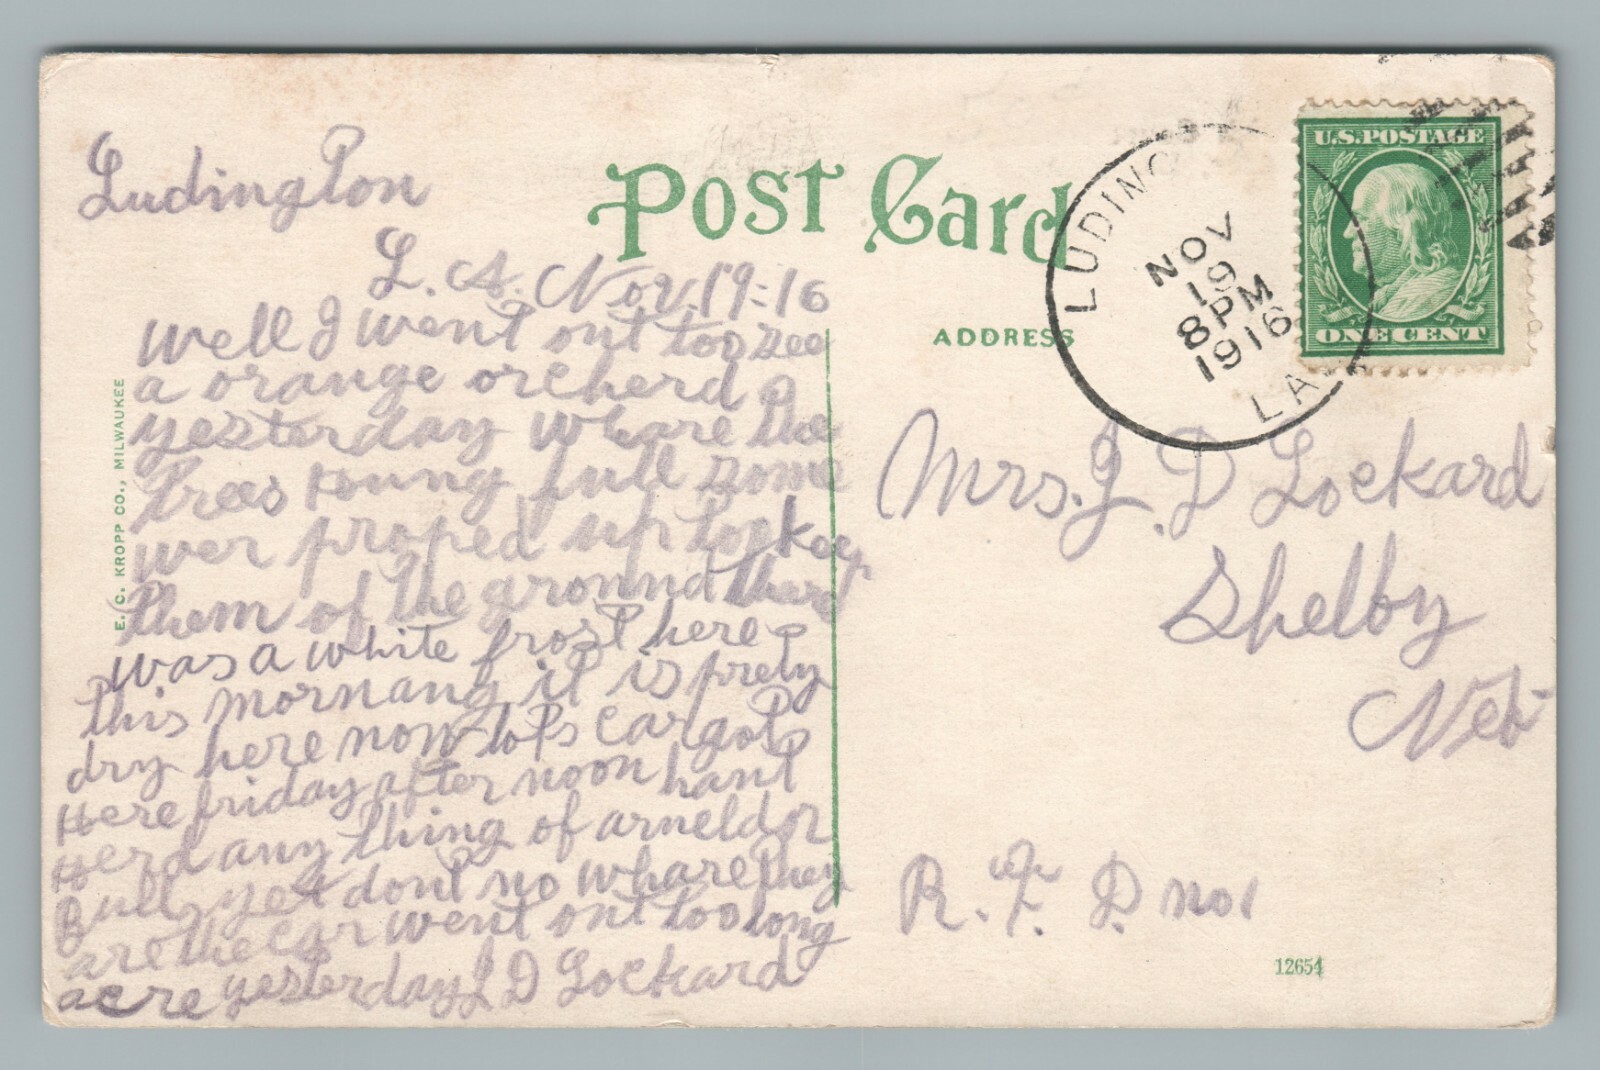 Ludington
L. A. Nov. 19=16
Well I went out too see
a orange orcherd
yesterday whare the
trees hung full some
wer proped up too keep
them of the ground there
was a white frost here
this mornang it is prety
dry here now lots car got
Here friday after noon hant
Herd any thing of arneld or
Bull yet dont no whare they
are the car went out too long
acre yesterday J D Lockard
E. C. KROPP CO., MILWAUKEE
POST CARD
ADDRESS
LUDING
NOV
19
8 PM
1916
LA.
U.S. POSTAGE
ONE CENT
Mrs. J. D Lockard
Shelby
Neb
R. F. D. no 1
12654